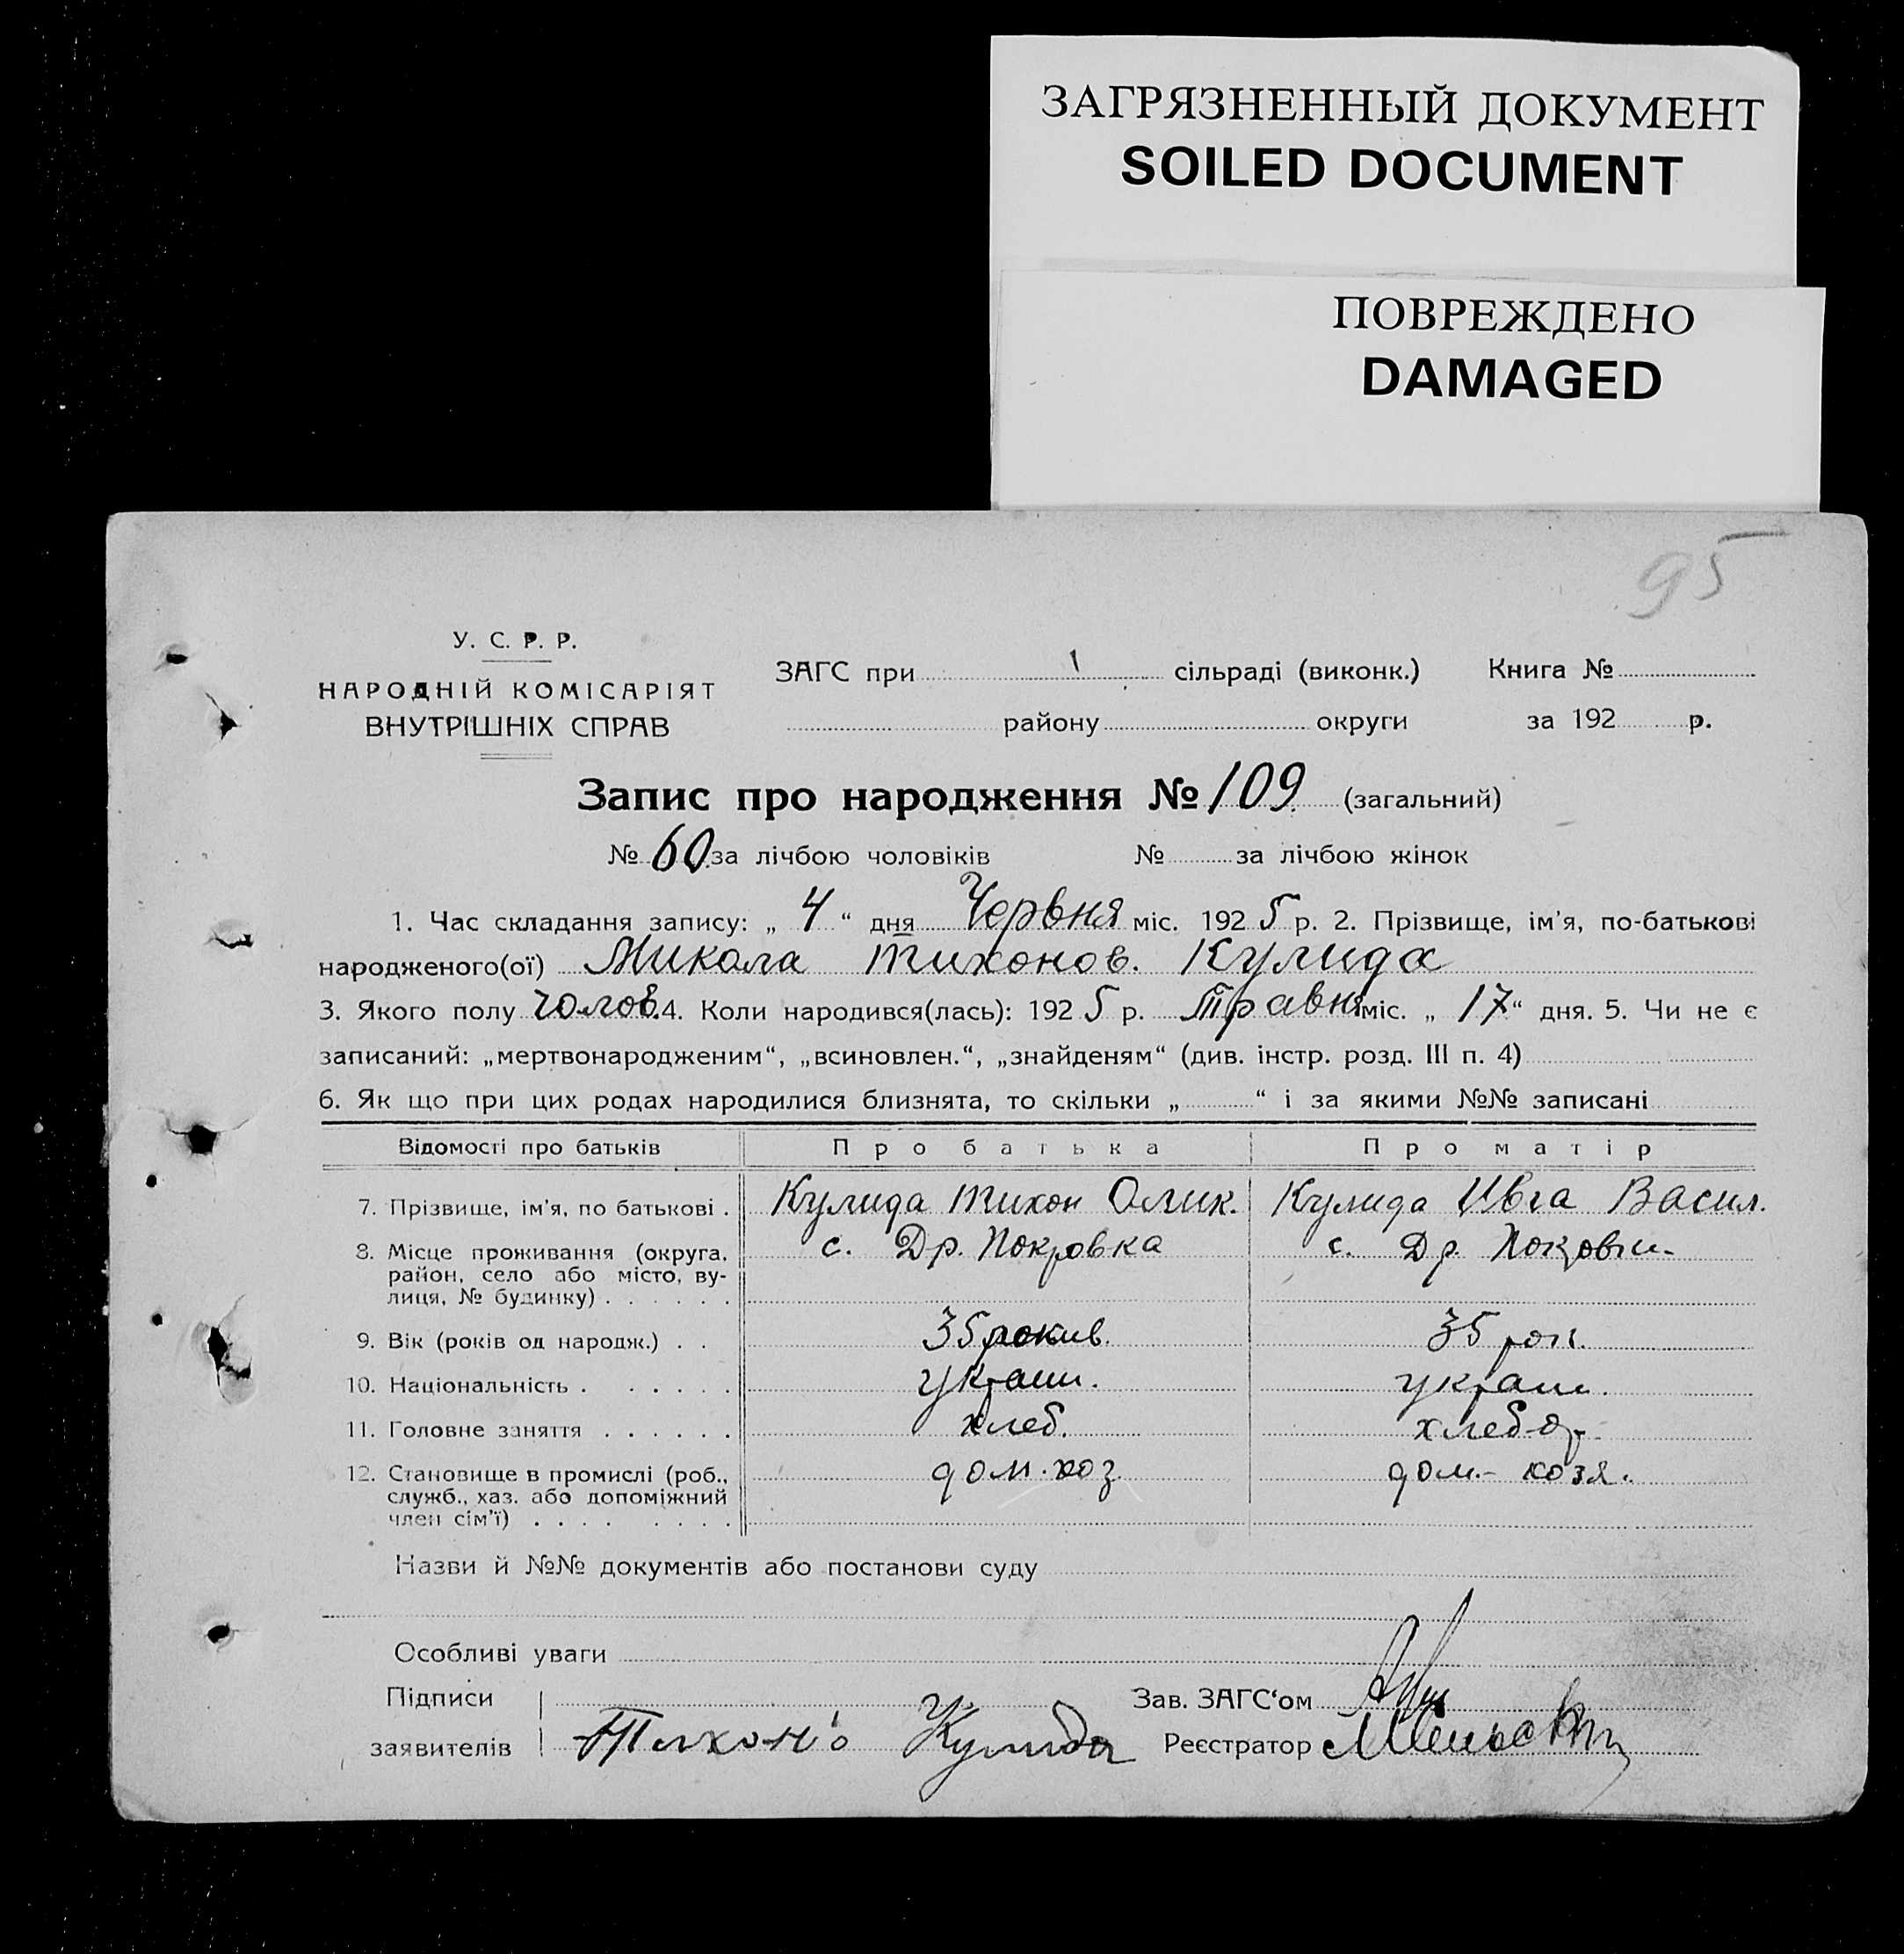 ЗАГРЯЗНЕННЫЙ ДОКУМЕНТ
SOILED DOCUMENT
ПОВРЕЖДЕНО
DAMAGED
95
У. С. Р. Р.
НАРОДНІЙ КОМІСАРІЯТ
ВНУТРІШНІХ СПРАВ
ЗАГС при 1 сільраді (виконк.) Книга №
району округи за 192 р.
Запис про народження № 109 (загальний)
№ 60 за лічбою чоловіків № за лічбою жінок
1. Час складання запису: „ 4 “ дня Червня міс. 1925 р. 2. Прізвище, ім'я, по-батькові
народженого(ої) Микола Тихонов. Кулида
3. Якого полу чолов. 4. Коли народився(лась): 1925 р. Травня міс. „ 17 “ дня. 5. Чи не є
записаний: „мертвонародженим“, „всиновлен.“, „знайденям“ (див. інстр. розд. III п. 4)
6. Як що при цих родах народилися близнята, то скільки „ “ і за якими №№ записані
Відомості про батьків Про батька Про матір
7. Прізвище, ім'я, по батькові . Кулида Тихон Олик. Кулида Ивга Васил.
8. Місце проживання (округа, с. Др. Покровка с. Др. Покровк.
район, село або місто, ву-
лиця, № будинку) . . . . . .
9. Вік (років од народж.) . . 35 рокив. 35 рок.
10. Національність . . . . . . украин. украин.
11. Головне заняття . . . . . . хлеб. хлебор.
12. Становище в промислі (роб., дом. хоз. дом.- хозя.
служб., хаз. або допоміжний
член сім'ї) . . . . . . . .
Назви й №№ документів або постанови суду
Особливі уваги
Підписи Зав. ЗАГС‘ом
заявителів Тихон Кулида Реєстратор